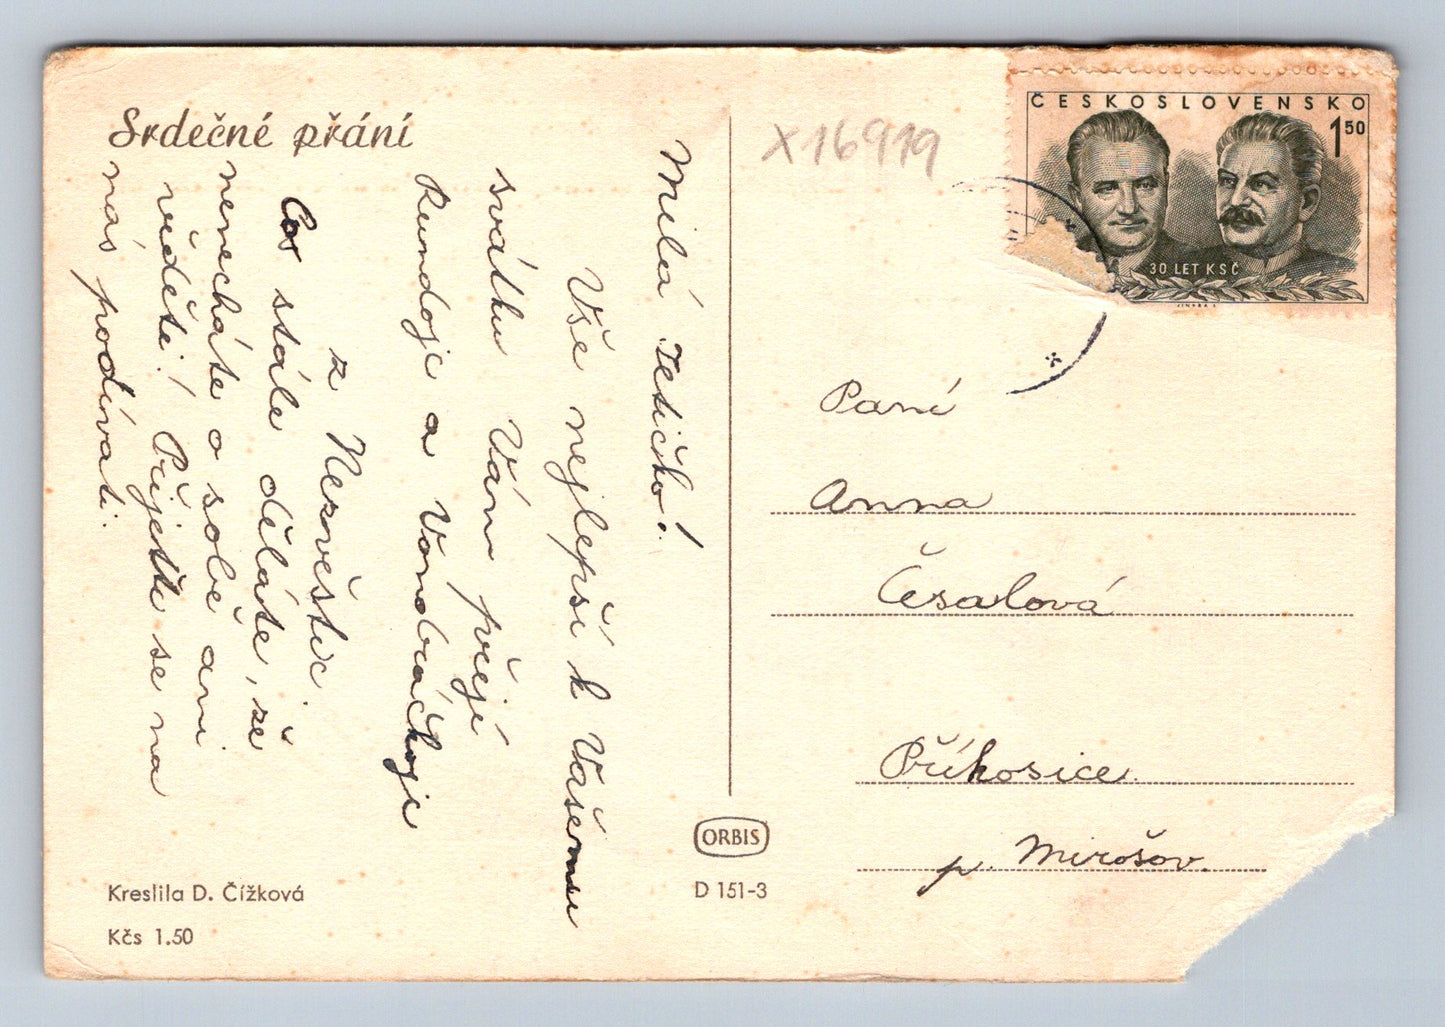 Srdečné přání
Milá Tetičko!
Vše nejlepší k Vašemu
svátku Vám přejí
a
z Nezvěstic.
Co stále děláte, že
nenecháte o sobě ani
věděti! Přijeďte se na
nás podívati.
Kreslila D. Čížková
Kčs 1.50
ORBIS
D 151-3
X16919
ČESKOSLOVENSKO
1 50
30 LET KSČ
Paní
Anna
Česalová
Příkosice
p. Mirošov.